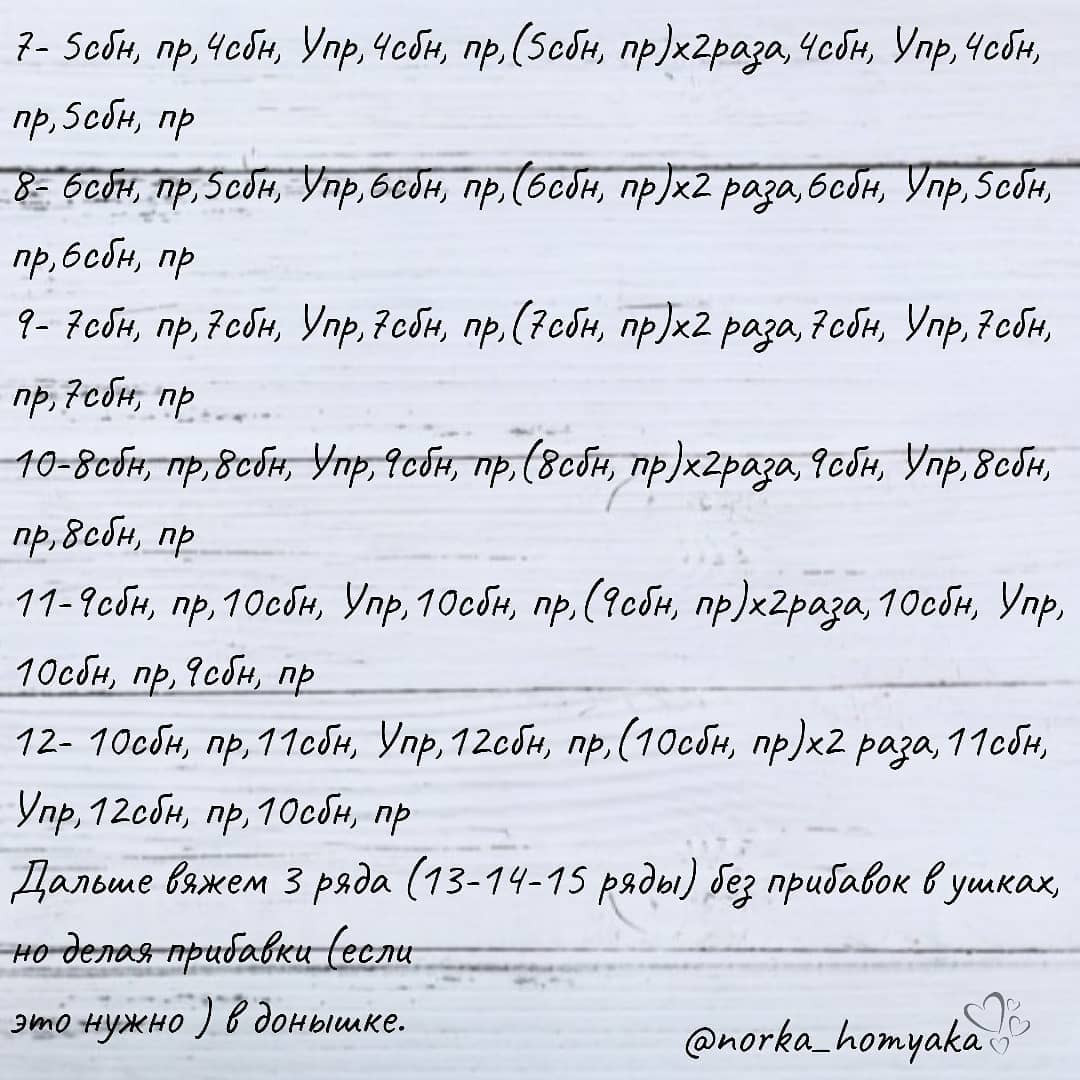 7- 5сбн, пр,4сбн, Упр,4сбн, пр,(5сбн, пр)х2раза,4сбн, Упр,4сбн,
пр,5сбн, пр
8- 6сбн, пр,5сбн, Упр,6сбн, пр,(6сбн, пр)х2 раза,6сбн, Упр,5сбн,
пр,6сбн, пр
9- 7сбн, пр,7сбн, Упр,7сбн, пр,(7сбн, пр)х2 раза,7сбн, Упр,7сбн,
пр,7сбн, пр
10-8сбн, пр,8сбн, Упр,9сбн, пр,(8сбн, пр)х2раза,9сбн, Упр,8сбн,
пр,8сбн, пр
11-9сбн, пр,10сбн, Упр,10сбн, пр,(9сбн, пр)х2раза,10сбн, Упр,
10сбн, пр,9сбн, пр
12- 10сбн, пр,11сбн, Упр,12сбн, пр,(10сбн, пр)х2 раза,11сбн,
Упр,12сбн, пр,10сбн, пр
Дальше вяжем 3 ряда (13-14-15 ряды) без прибавок в ушках,
но делая прибавки (если
это нужно ) в донышке.
@norka_homyaka